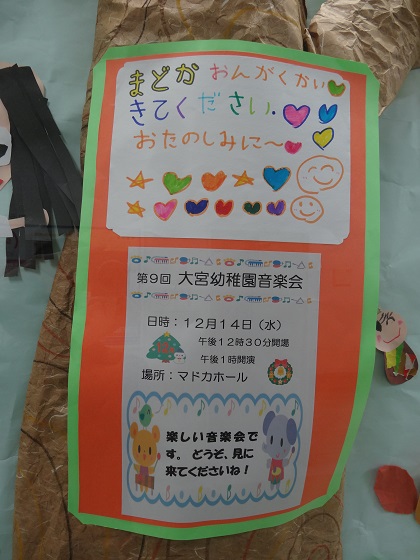 まどか おんがくかい
きてください。
おたのしみに〜
第9回 大宮幼稚園音楽会
日時：12月14日（水）
午後12時30分開場
午後1時開演
場所：マドカホール
楽しい音楽会で
す。どうぞ、見に
来てくださいね！